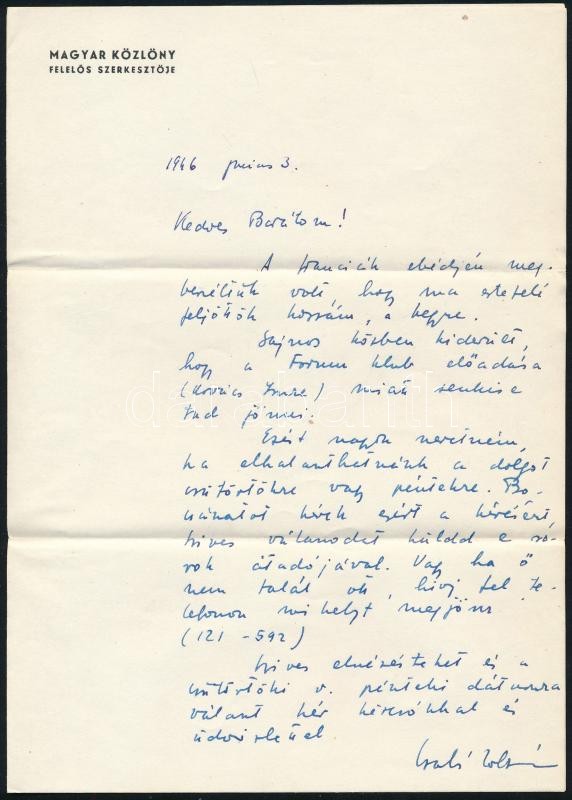 MAGYAR KÖZLÖNY
FELELŐS SZERKESZTŐJE
1946 junius 3.
Kedves Barátom!
A franciák ebédjén meg-
beszéltük volt, hogy ma estefelé
feljöttök hozzám, a hegyre.
Sajnos közben kiderült,
hogy a Forum klub előadása
(Kovács Imre) miatt senki se
tud jönni.
Ezért nagyon szeretném,
ha elhalaszthatnánk a dolgot
csütörtökre vagy péntekre. Bo-
csánatot kérek ezért a kérésért,
szives válaszodat küldd e so-
rok átadójával. Vagy ha ő
nem talál ott, hivj fel te-
lefonon mihelyt megjössz
(121-592)
Szives elnézésteket és a
csütörtöki v. pénteki dátumra
választ kér kézcsókkal és
üdvözlettel
Szabó Zoltán
darabanth